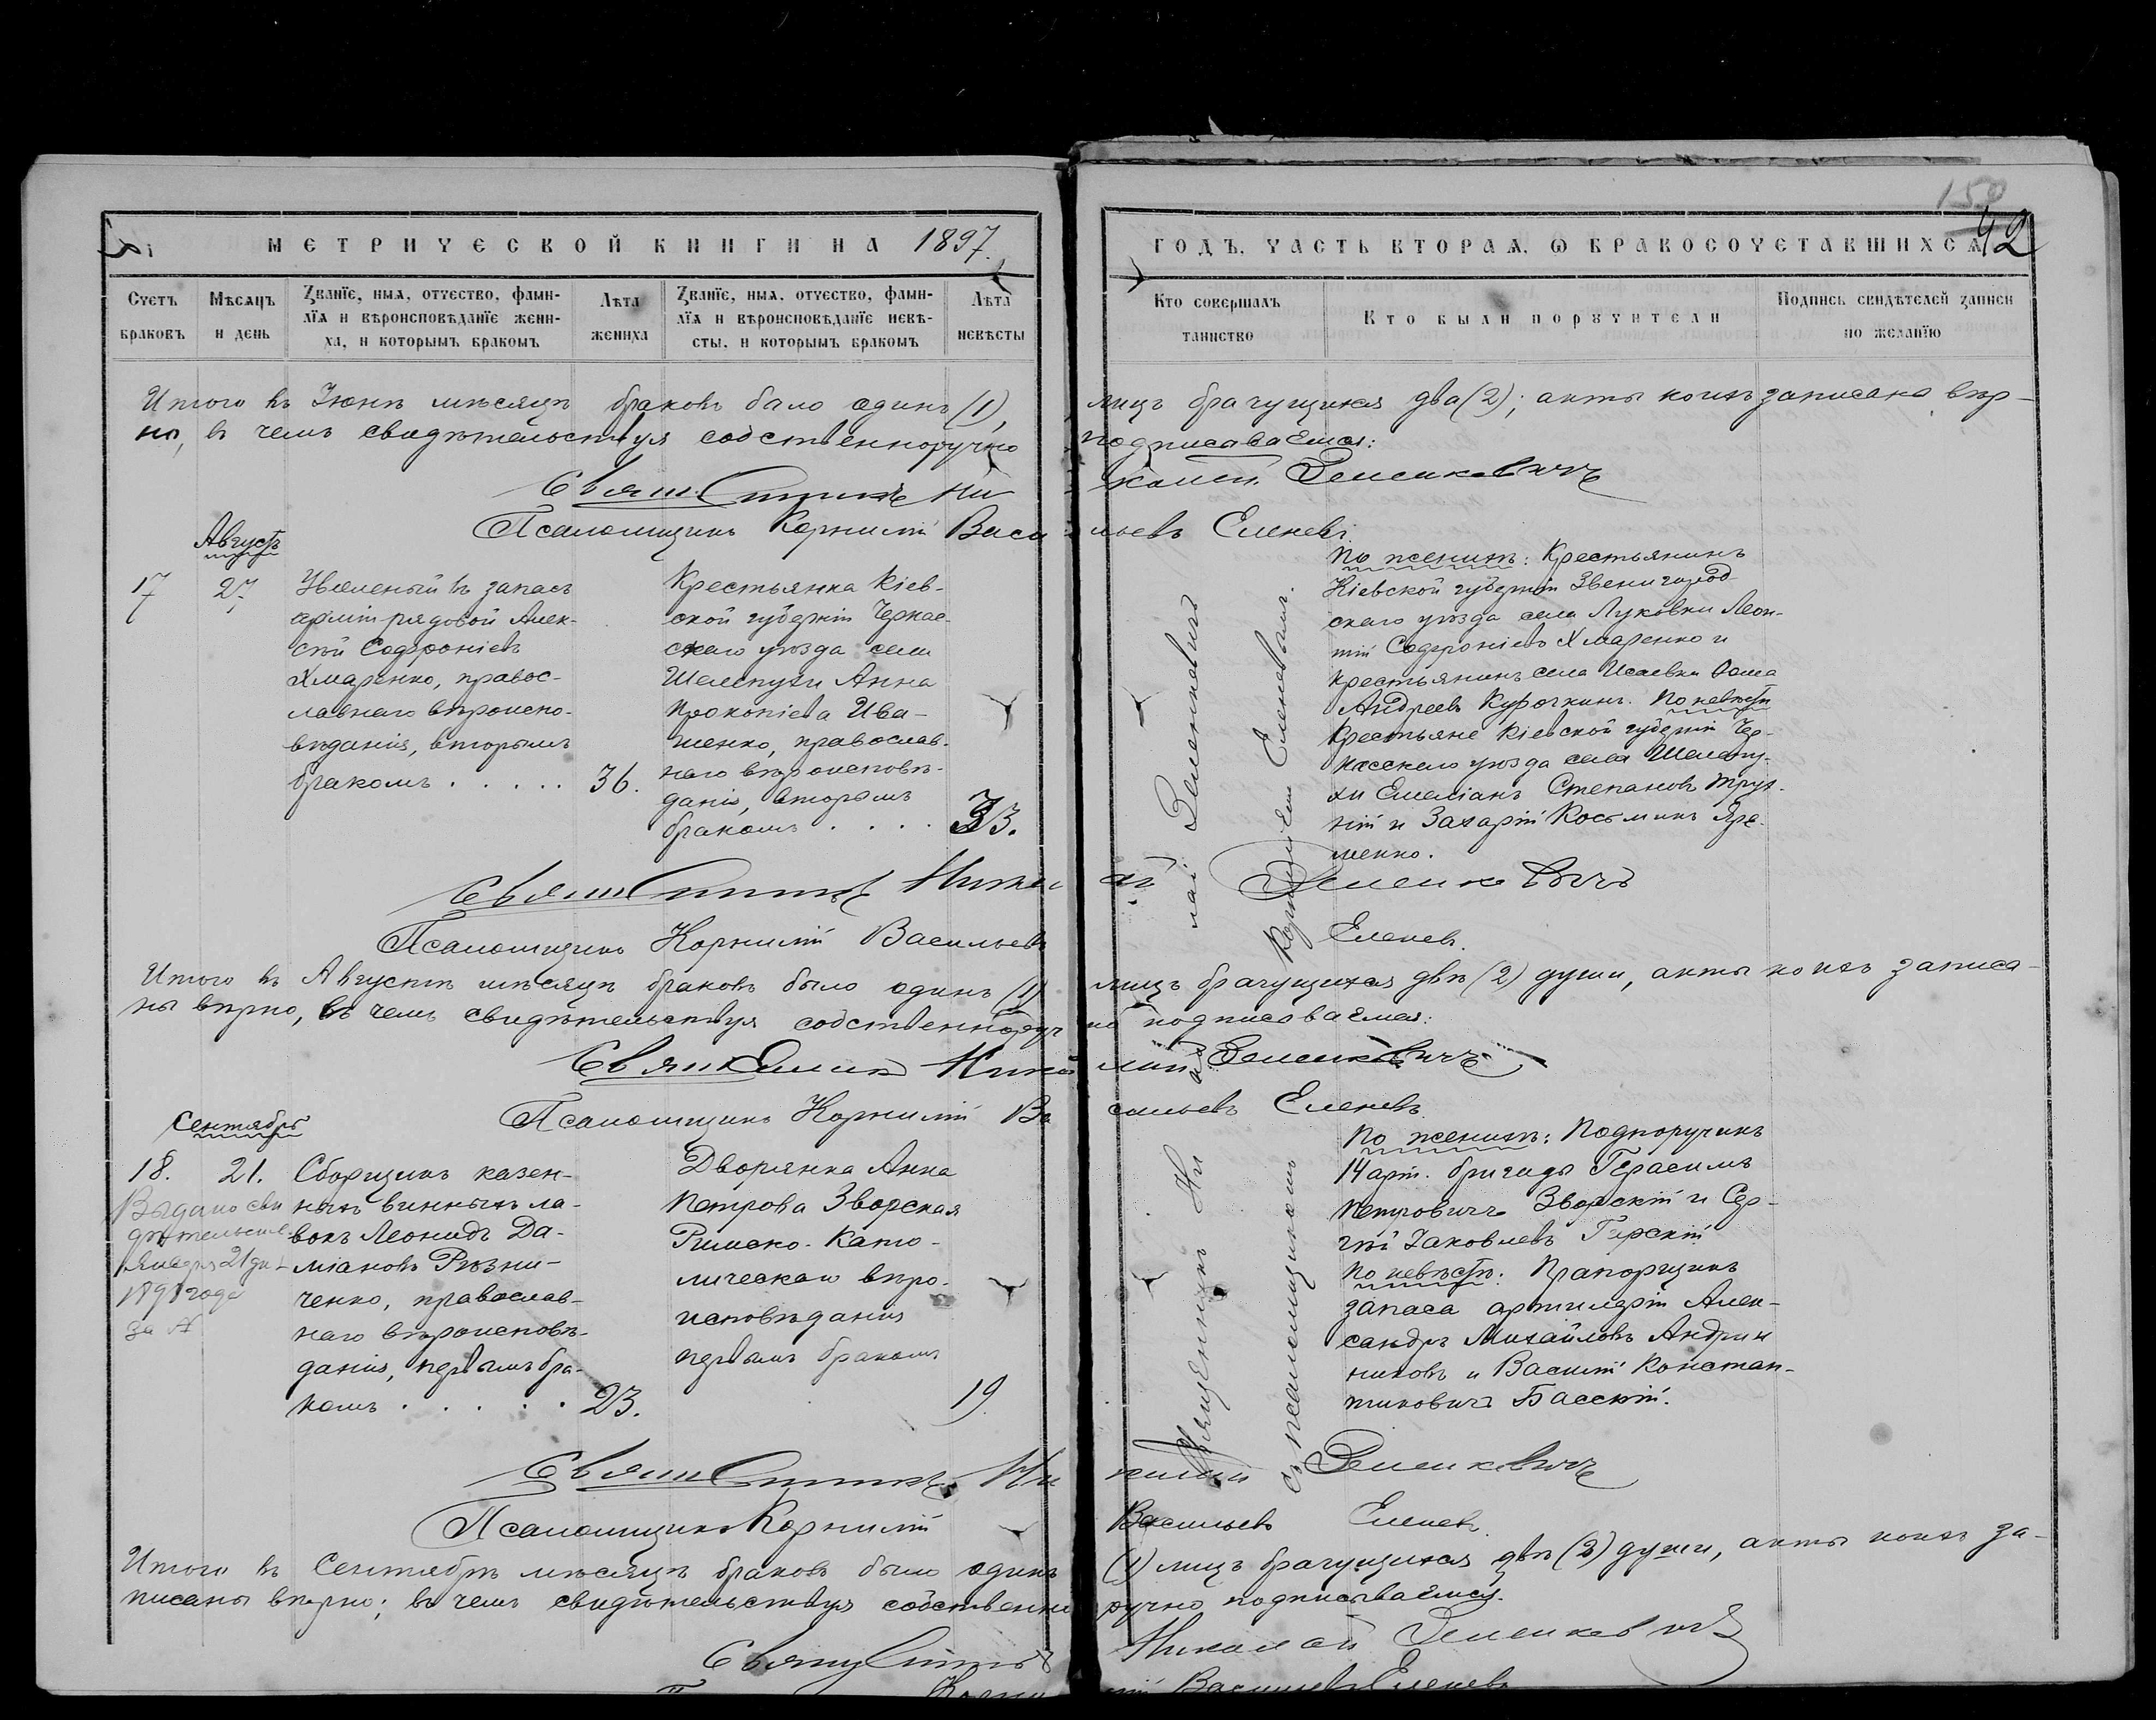 150
42
МЕТРИЧЕСКОЙ КНИГИ НА 1897.
Счетъ браковъ
Мѣсяцъ и день
Званїе, имя, отчество, фамилїя и вѣроисповѣданїе жениха, и которымъ бракомъ
Лѣта жениха
Званїе, имя, отчество, фамилїя и вѣроисповѣданїе невѣсты, и которымъ бракомъ
Лѣта невѣсты
ГОДЪ, ЧАСТЬ ВТОРАЯ, Ѡ БРАКОСОЧЕТАВШИХСЯ
Кто совершалъ таинство
Кто были поручители
Подпись свидѣтелей записи по желанїю
Итого въ Іюнѣ мѣсяцѣ браковъ было одинъ (1), лицъ брачущихся два (2); акты коихъ записаны вѣр-
ны, въ чемъ свидѣтельствуя собственноручно подписываемся:
Священникъ Николай Зеленкевичъ
Псаломщикъ Корнилій Васильевъ Еленевъ
Августъ
17 27
Уволеный въ запасъ
арміи рядовой Алек-
сѣй Софроніевъ
Хмаренко, правос-
лавнаго вѣроиспо-
вѣданія, вторымъ
бракомъ . . . . . 36.
Крестьянка Кіев-
ской губерніи Черкас-
скаго уѣзда села
Шелепухи Анна
Прокопіева Ива-
щенко, православ-
наго вѣроисповѣ-
данія, вторымъ
бракомъ . . . . 33.
Священникъ Николай Зеленкевичъ
съ псаломщикомъ Корниліем Еленевымъ.
По женихѣ: Крестьянинъ
Кіевской губерніи Звенигород-
скаго уѣзда села Луковки Леон-
тій Софроніевъ Хмаренко и
крестьянинъ села Исаевки Фома
Андреевъ Курочкинъ. По невѣстѣ
Крестьяне Кіевской губерніи Чер-
касскаго уѣзда села Шелепу-
хи Емеліанъ Степановъ
и Захарій Косьминъ Яре-
менко.
Священникъ Николай Зеленкевичъ
Псаломщикъ Корнилій Васильевъ Еленев.
Итого въ Августѣ мѣсяцѣ браковъ было одинъ (1) лицъ брачущихся двѣ (2) души, акты коихъ записа-
ны вѣрно, въ чемъ свидѣтельствуя собственноручно подписываемся:
Священникъ Николай Зеленкевичъ
Псаломщикъ Корнилій Васильевъ Еленевъ
Сентябрь
18. 21.
Выдано сви
дѣтельств.
Января 21 дн
1898 года
за №
Сборщикъ казен-
ныхъ винныхъ ла-
вокъ Леонидъ Да-
міановъ Рѣзни-
ченко, православ-
наго вѣроисповѣ-
данія, первымъ бра-
комъ . . . . . 23.
Дворянка Анна
Петрова Зворская
Римско-Като-
лическаго вѣро-
исповѣданія
первымъ бракомъ
19
По женихѣ: Подпоручикъ
14 арт. бригады Герасимъ
Петровичъ Зворскій и Сер-
гѣй Іаковлевъ Гирскій
По невѣстѣ: Прапорщикъ
запаса артилеріи Алек-
сандръ Михайловъ Андрии
никовъ и Василій Констан-
тиновичъ Басскій.
Священникъ Николай Зеленкевичъ
Псаломщикъ Корнилій Васильевъ Еленев.
Итого въ Сентябрѣ мѣсяцѣ браковъ было одинъ (1) лицъ брачущихся двѣ (2) души, акты коихъ за-
писаны вѣрно; въ чемъ свидѣтельствуя собственноручно подписываемся.
Священникъ Николай Зеленкевичъ
Васильевъ Еленевъ